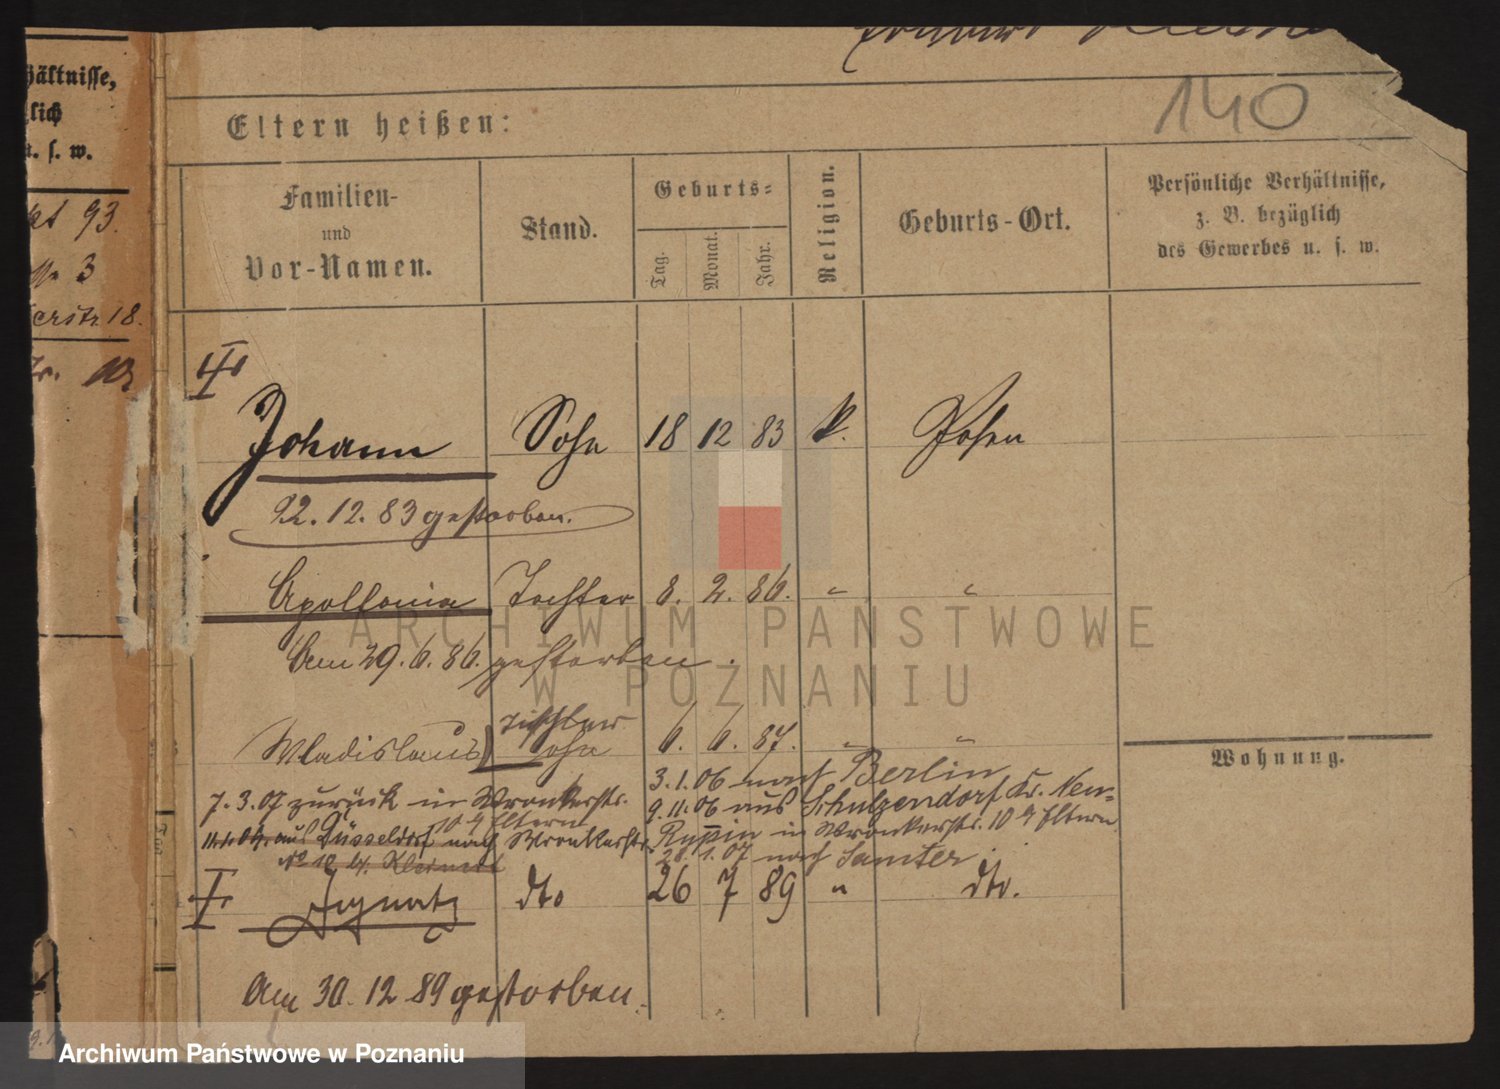 hältnisse,
lich
u. s. w.
93.
3
erstr 18.
140
Eltern heißen:
Familien-
und
Vor-Namen.
Stand.
Geburts-
Tag.
Monat.
Jahr.
Religion.
Geburts-Ort.
Persönliche Verhältnisse,
z. B. bezüglich
des Gewerbes u. s. w.
Johann Sohn 18 12 83 k. Posen
22. 12. 83 gestorben.
Apollonia Tochter 8. 2. 86. " "
Am 29. 6. 86. gestorben.
Tischler
Wladislaus Sohn 6. 6. 87. " "
Wohnung.
3. 1. 06 nach Berlin
7. 3. 07 zurück in Wronkerstr.
10 b/ Eltern
9. 11. 06 aus Schulzendorf Kr. Neu-
Ruppin in Wronkerstr. 10 b/ Eltern
aus Düsseldorf nach Wronkerstr.
28. 1. 07 nach Samter.
Ignatz dto 26 7 89 " dto.
Am 30. 12 89 gestorben.
ARCHIWUM PAŃSTWOWE
W POZNANIU
Archiwum Państwowe w Poznaniu